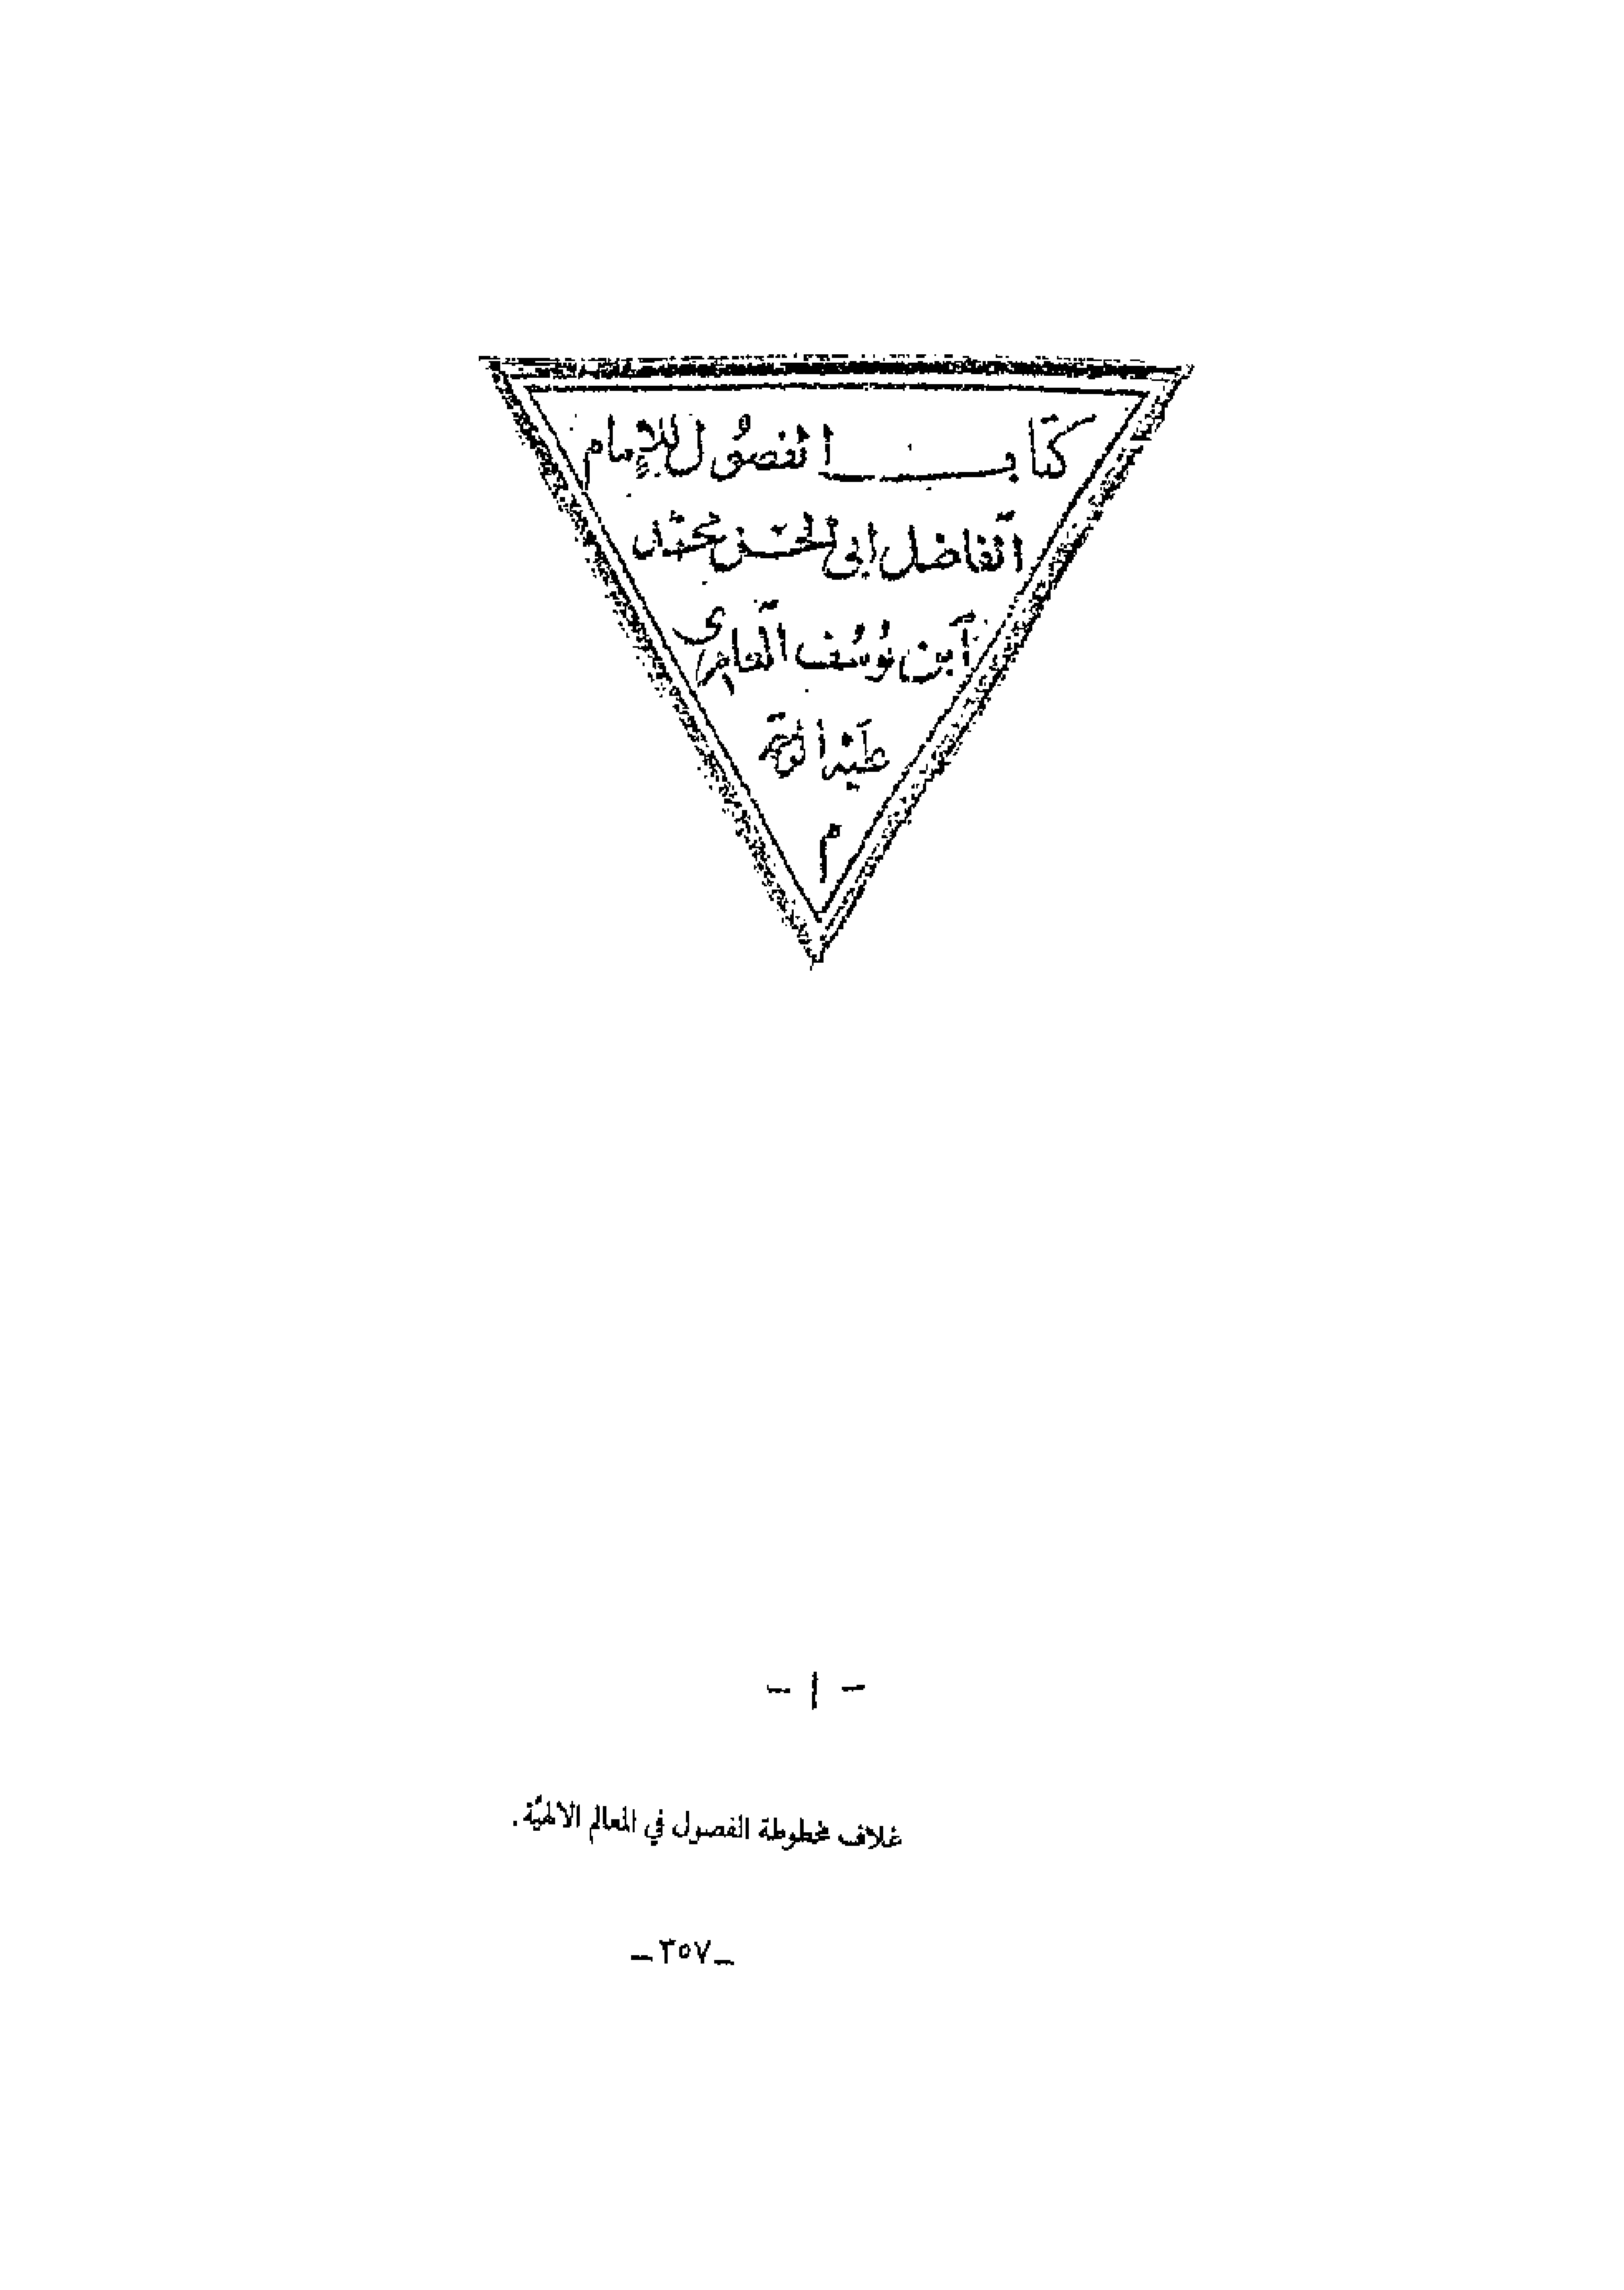 كتاب الفصول للإمام
الفاضل ابى الحسن محمد
ابن يوسف العامرى
عليه الرحمة
م
- ١ -
غلاف مخطوطة الفصول في المعالم الالهيّة .
- ٣٥٧ -